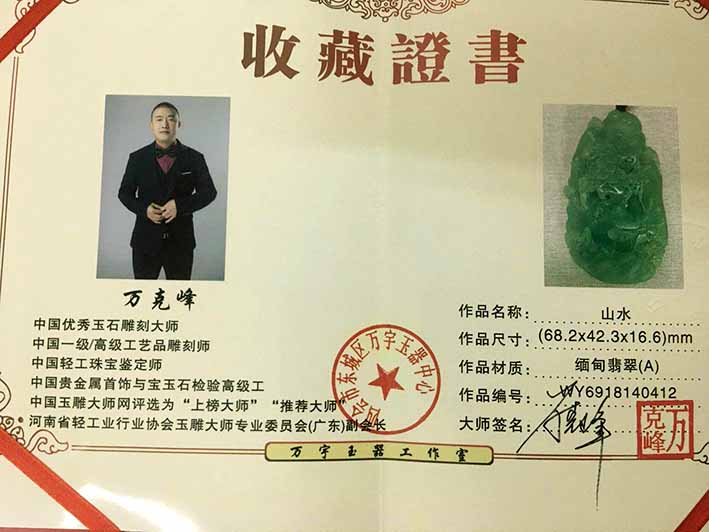 收藏證書
万克峰
中国优秀玉石雕刻大师
中国一级/高级工艺品雕刻师
中国轻工珠宝鉴定师
中国贵金属首饰与宝玉石检验高级工
中国玉雕大师网评选为“上榜大师”“推荐大师”
河南省轻工业行业协会玉雕大师专业委员会(广东)副会长
四会市东城区万宇玉器中心
作品名称: 山水
作品尺寸: (68.2x42.3x16.6)mm
作品材质: 缅甸翡翠(A)
作品编号: WY6918140412
大师签名:
万克峰
万宇玉器工作室